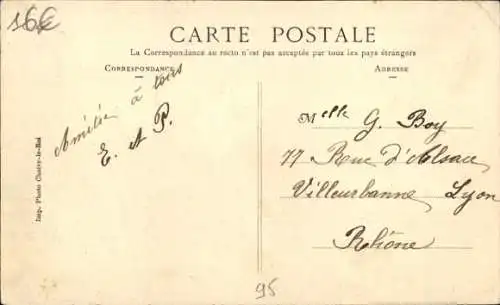 16€
CARTE POSTALE
La Correspondance au recto n'est pas acceptée par tous les pays étrangers
CORRESPONDANCE
ADRESSE
Amitiés à tous
E. et P.
Melle G. Boy
77 Rue d'Alsace
Villeurbanne Lyon
Rhône
Imp. Photo Choisy-le-Roi
95